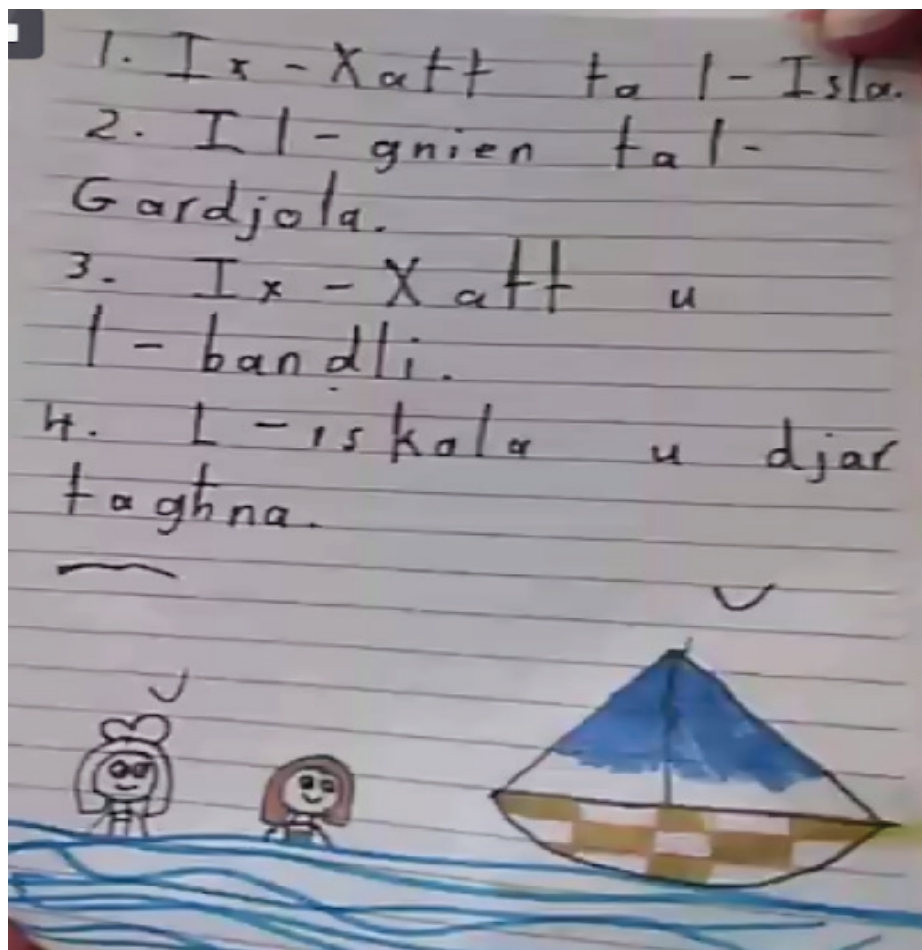 1. Ix-Xatt ta l-Isla.
2. Il-gnien tal-
Gardjola.
3. Ix-Xatt u
l-bandli.
4. L-iskala u djar
tagħna.